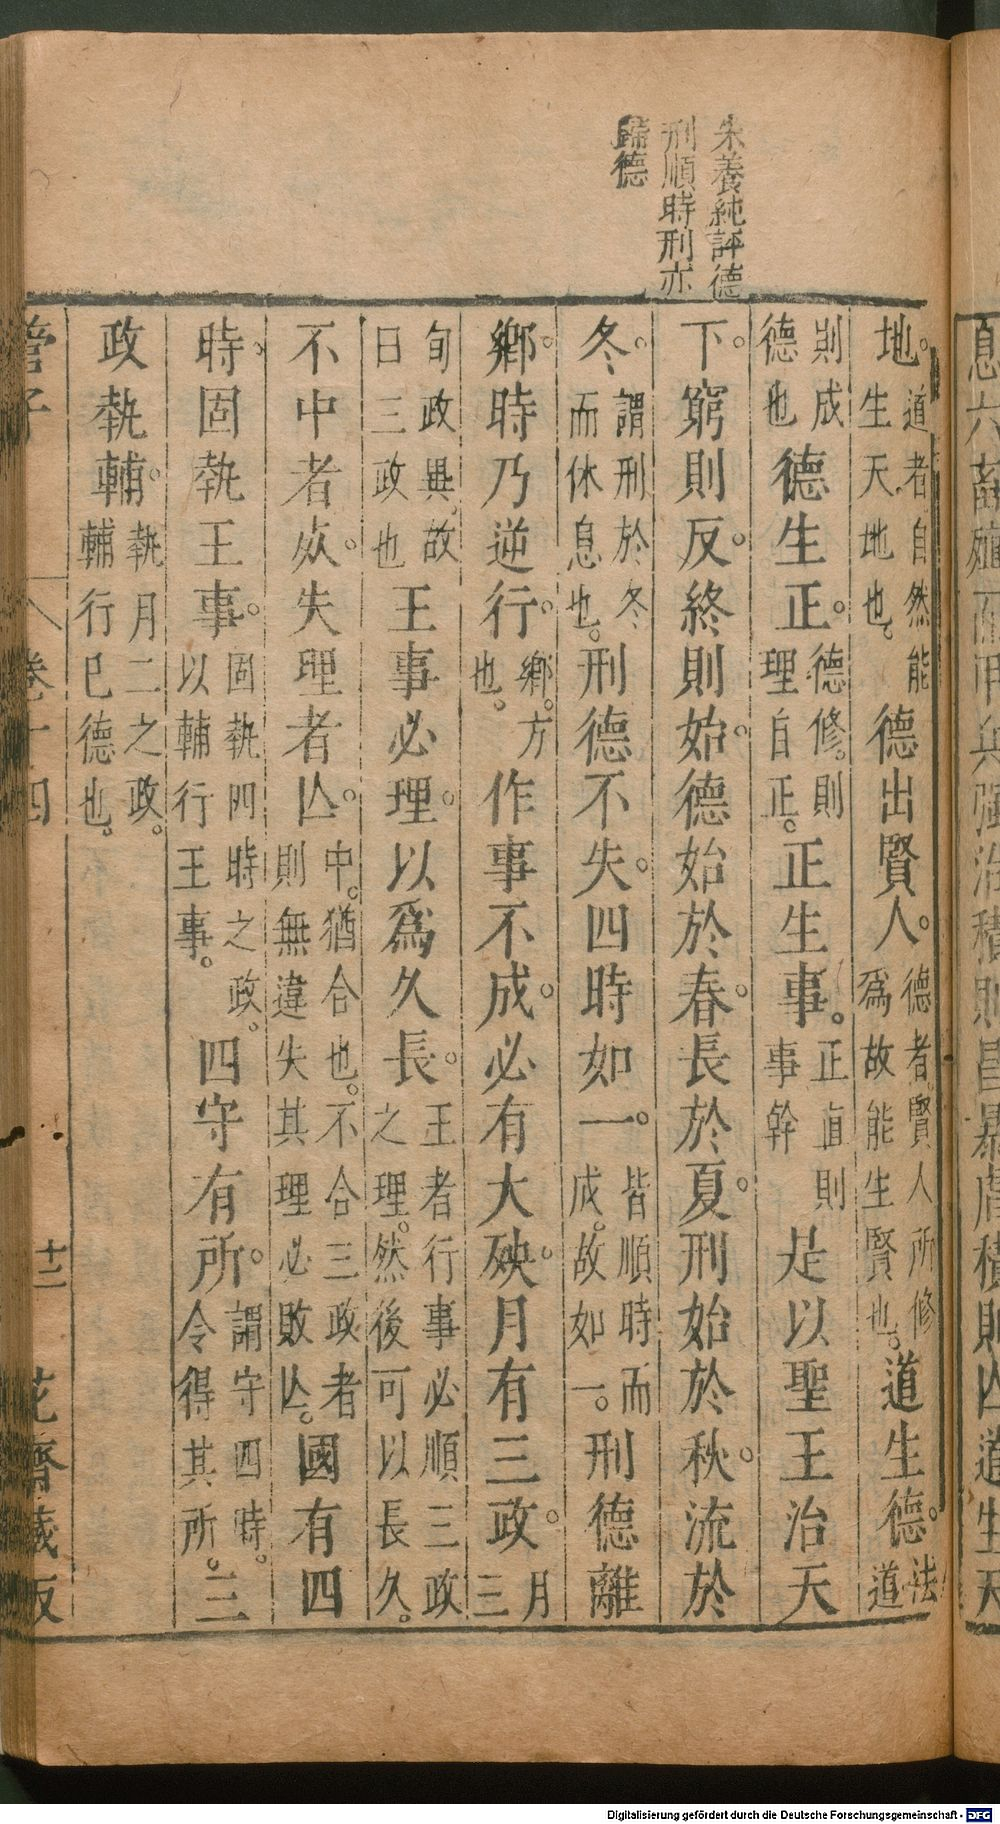 朱養純評德
刑順時刑亦
歸德
息六畜殖而甲兵强治積則昌暴虐積則亾道生天
地。道者自然能生天地也。德出賢人。德者賢人所修爲故能生賢也。道生德。法道
則成德也德生正。德修。則理自正。正生事。正直則事幹是以聖王治天
下。窮則反。終則始。德始於春。長於夏。刑始於秋。流於
冬。謂刑於冬而休息也。刑德不失。四時如一。皆順時而成。故如一。刑德離
鄉。時乃逆行。鄉。方也。作事不成。必有大殃。月有三政。月三
旬政異。故日三政也王事必理。以爲久長。王者行事必順三政之理。然後可以長久。
不中者㱙。失理者亾。中。猶合也。不合三政者則無違失其理必敗亾。國有四
時。固執王事。固執四時之政。以輔行王事。四守有所。謂守四時。令得其所。三
政執輔。執月二之政。輔行巳德也。
管子
卷十四
十二
花齋藏板
Digitalisierung gefördert durch die Deutsche Forschungsgemeinschaft - DFG